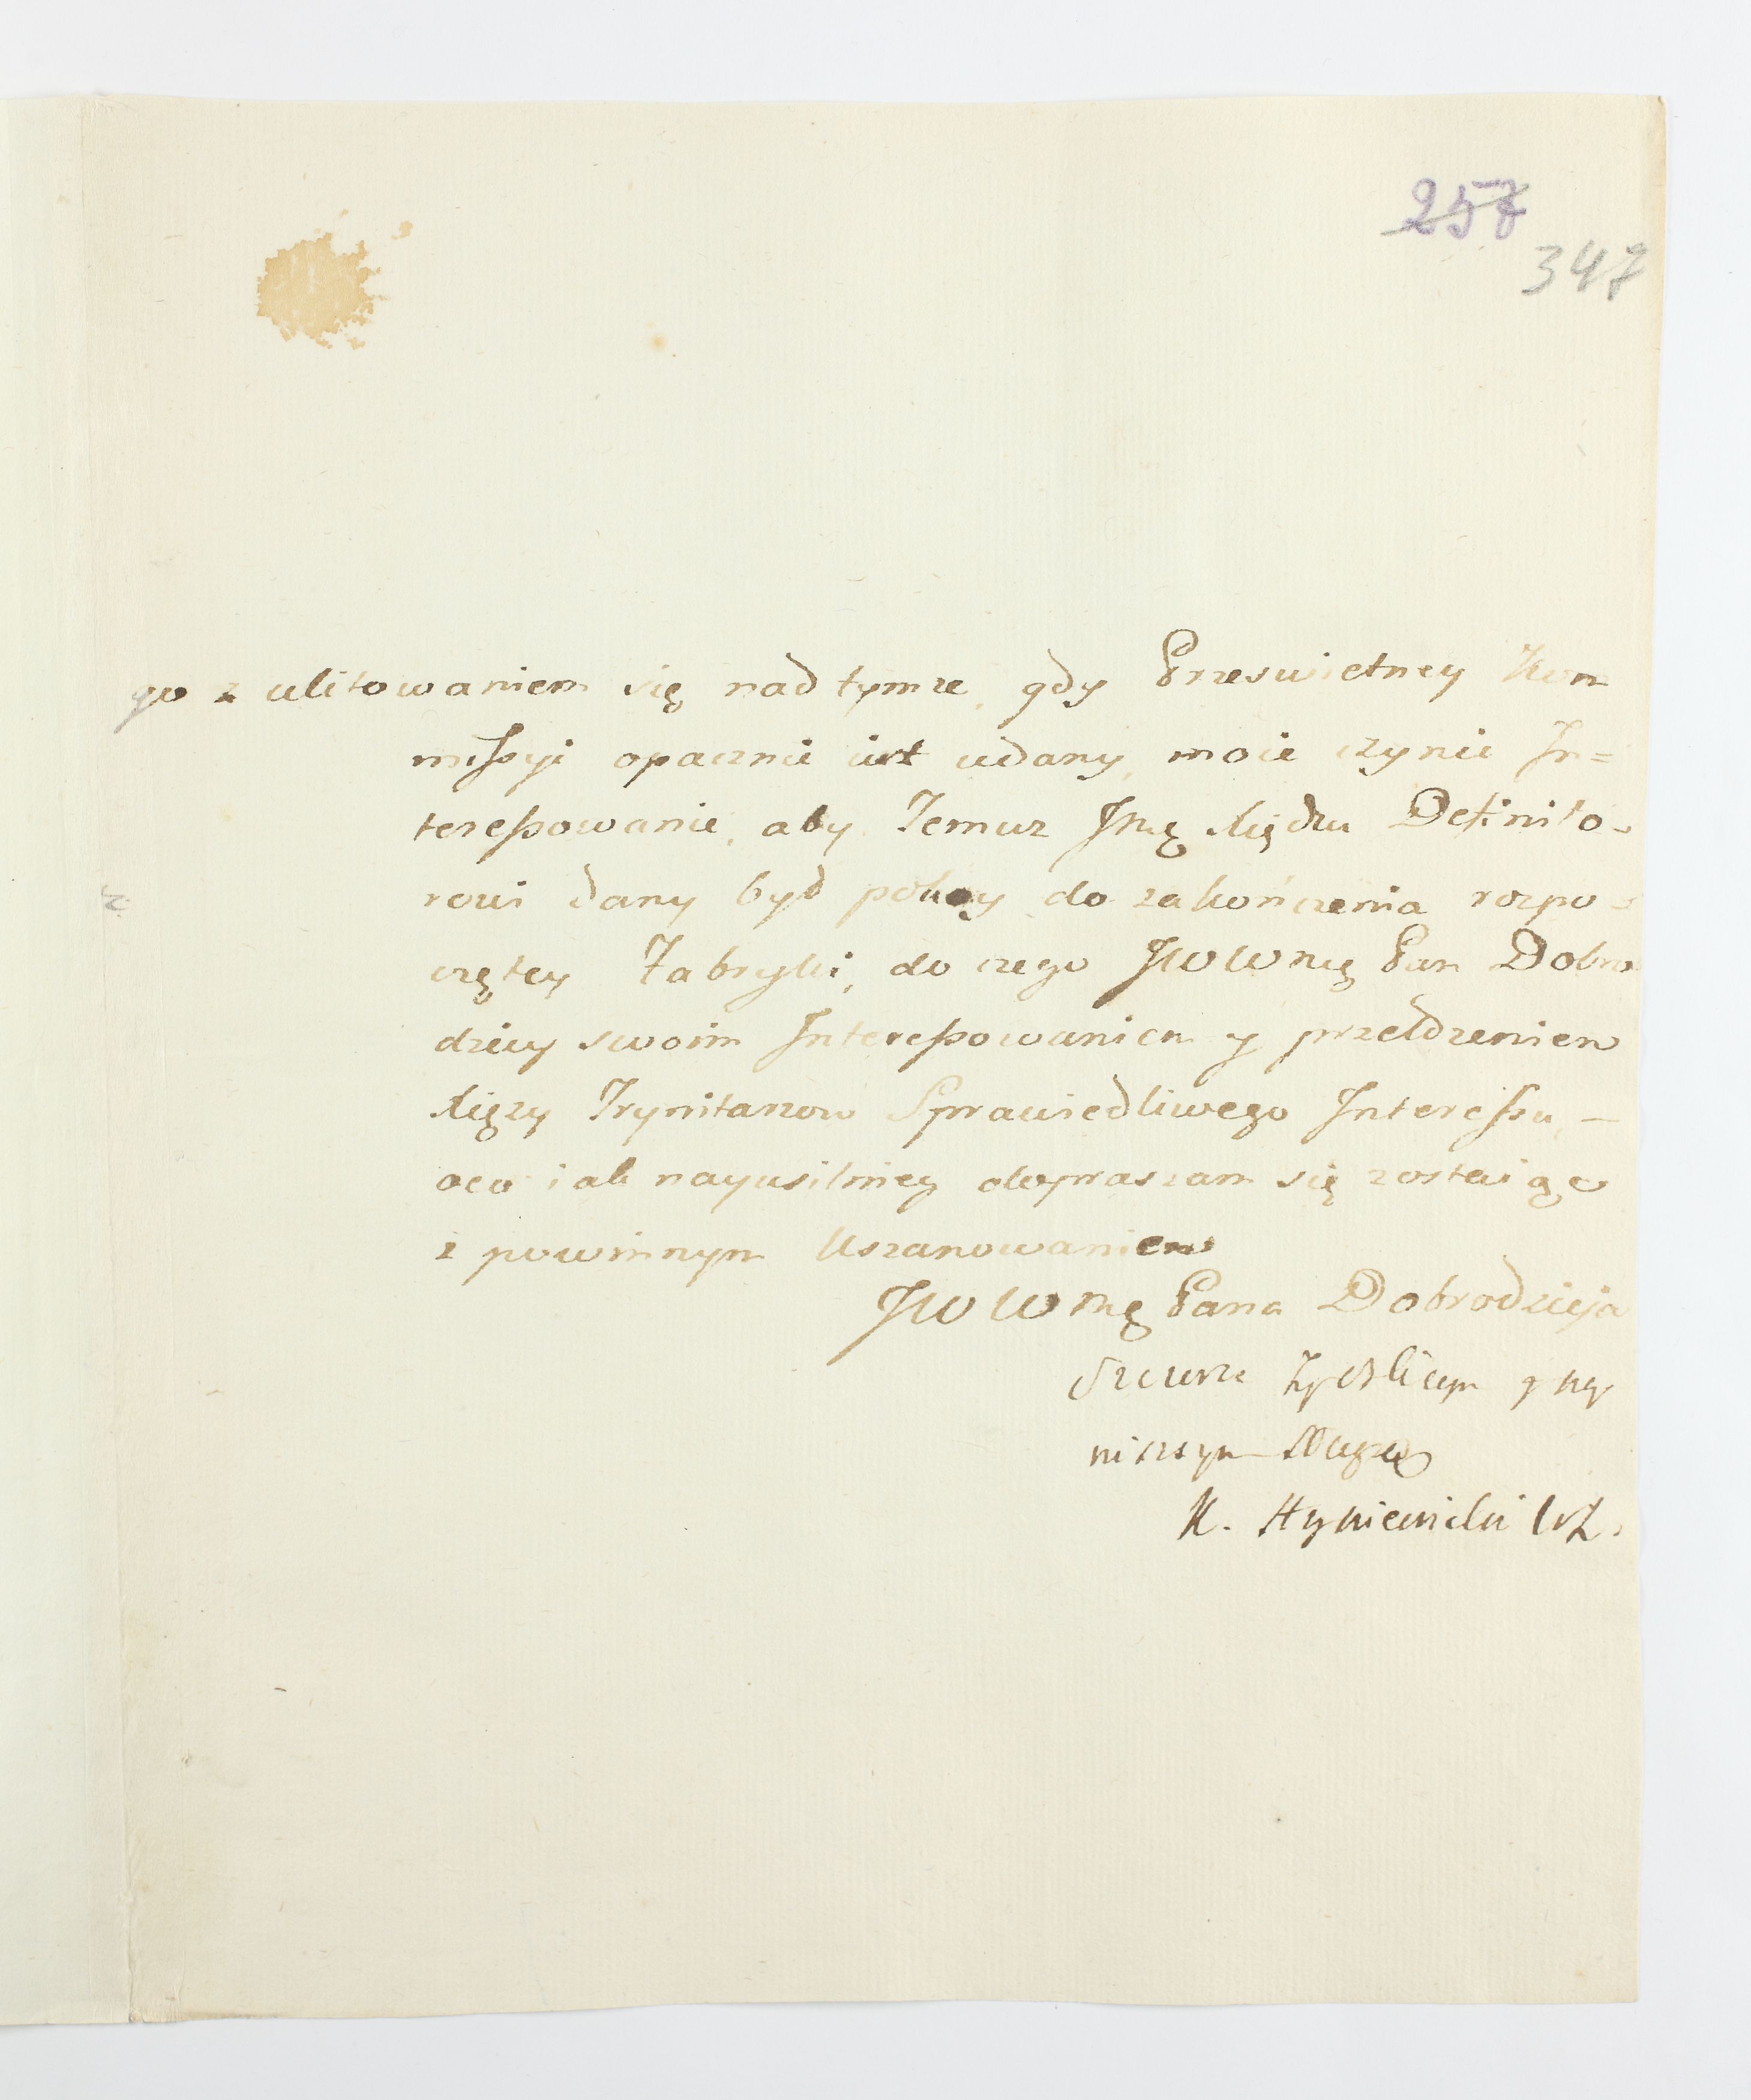 257
347
go z ulitowaniem się nad tymze, gdy Przeswietney Kom
missyi opacznie iest udany, moie czynie In=
teressowanie, aby Temuz Jmę Xiędzu Definito-
rowi dany był pokoy do zakończenia rozpo-
czętey Fabryki, do czego JWWMę Pan Dobro
dziey swoim Interessowaniem y przełozeniem
Xięzy Trynitarzow Sprawiedliwego Interessu, -
oco iak nayusilniey dopraszam się zostaiąc
z powinnym Uszanowaniem
JWWMę Pana Dobrodzieja
Szczerze Zyczliwym y nay
niszszym Sługą
K. Hyniewicki